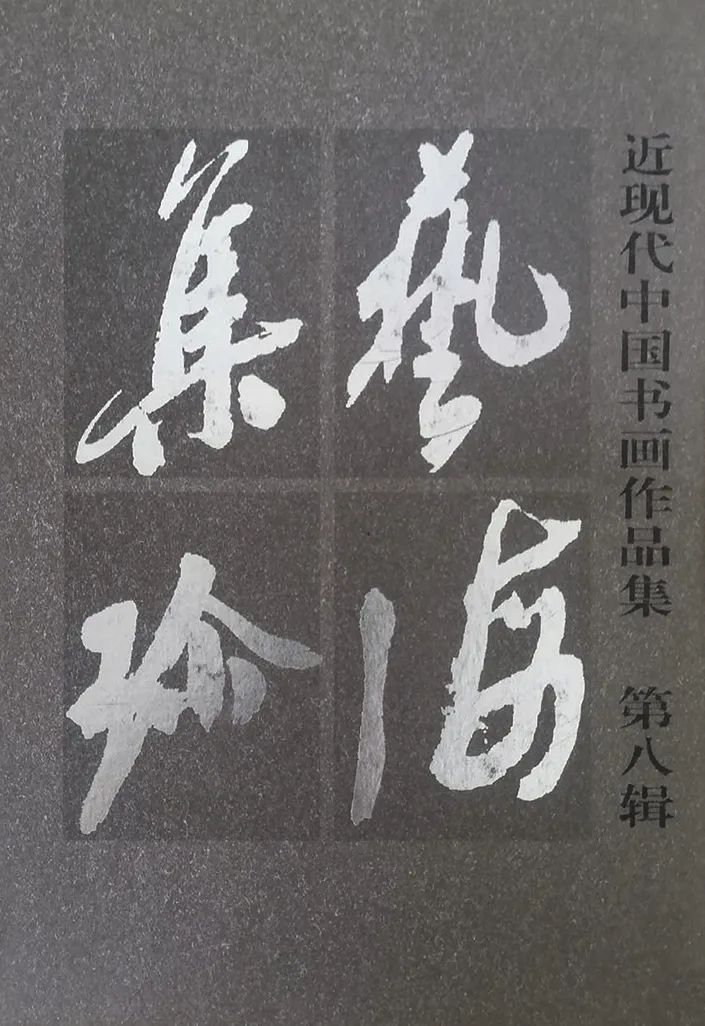 近现代中国书画作品集 第八辑
藝海
集珍